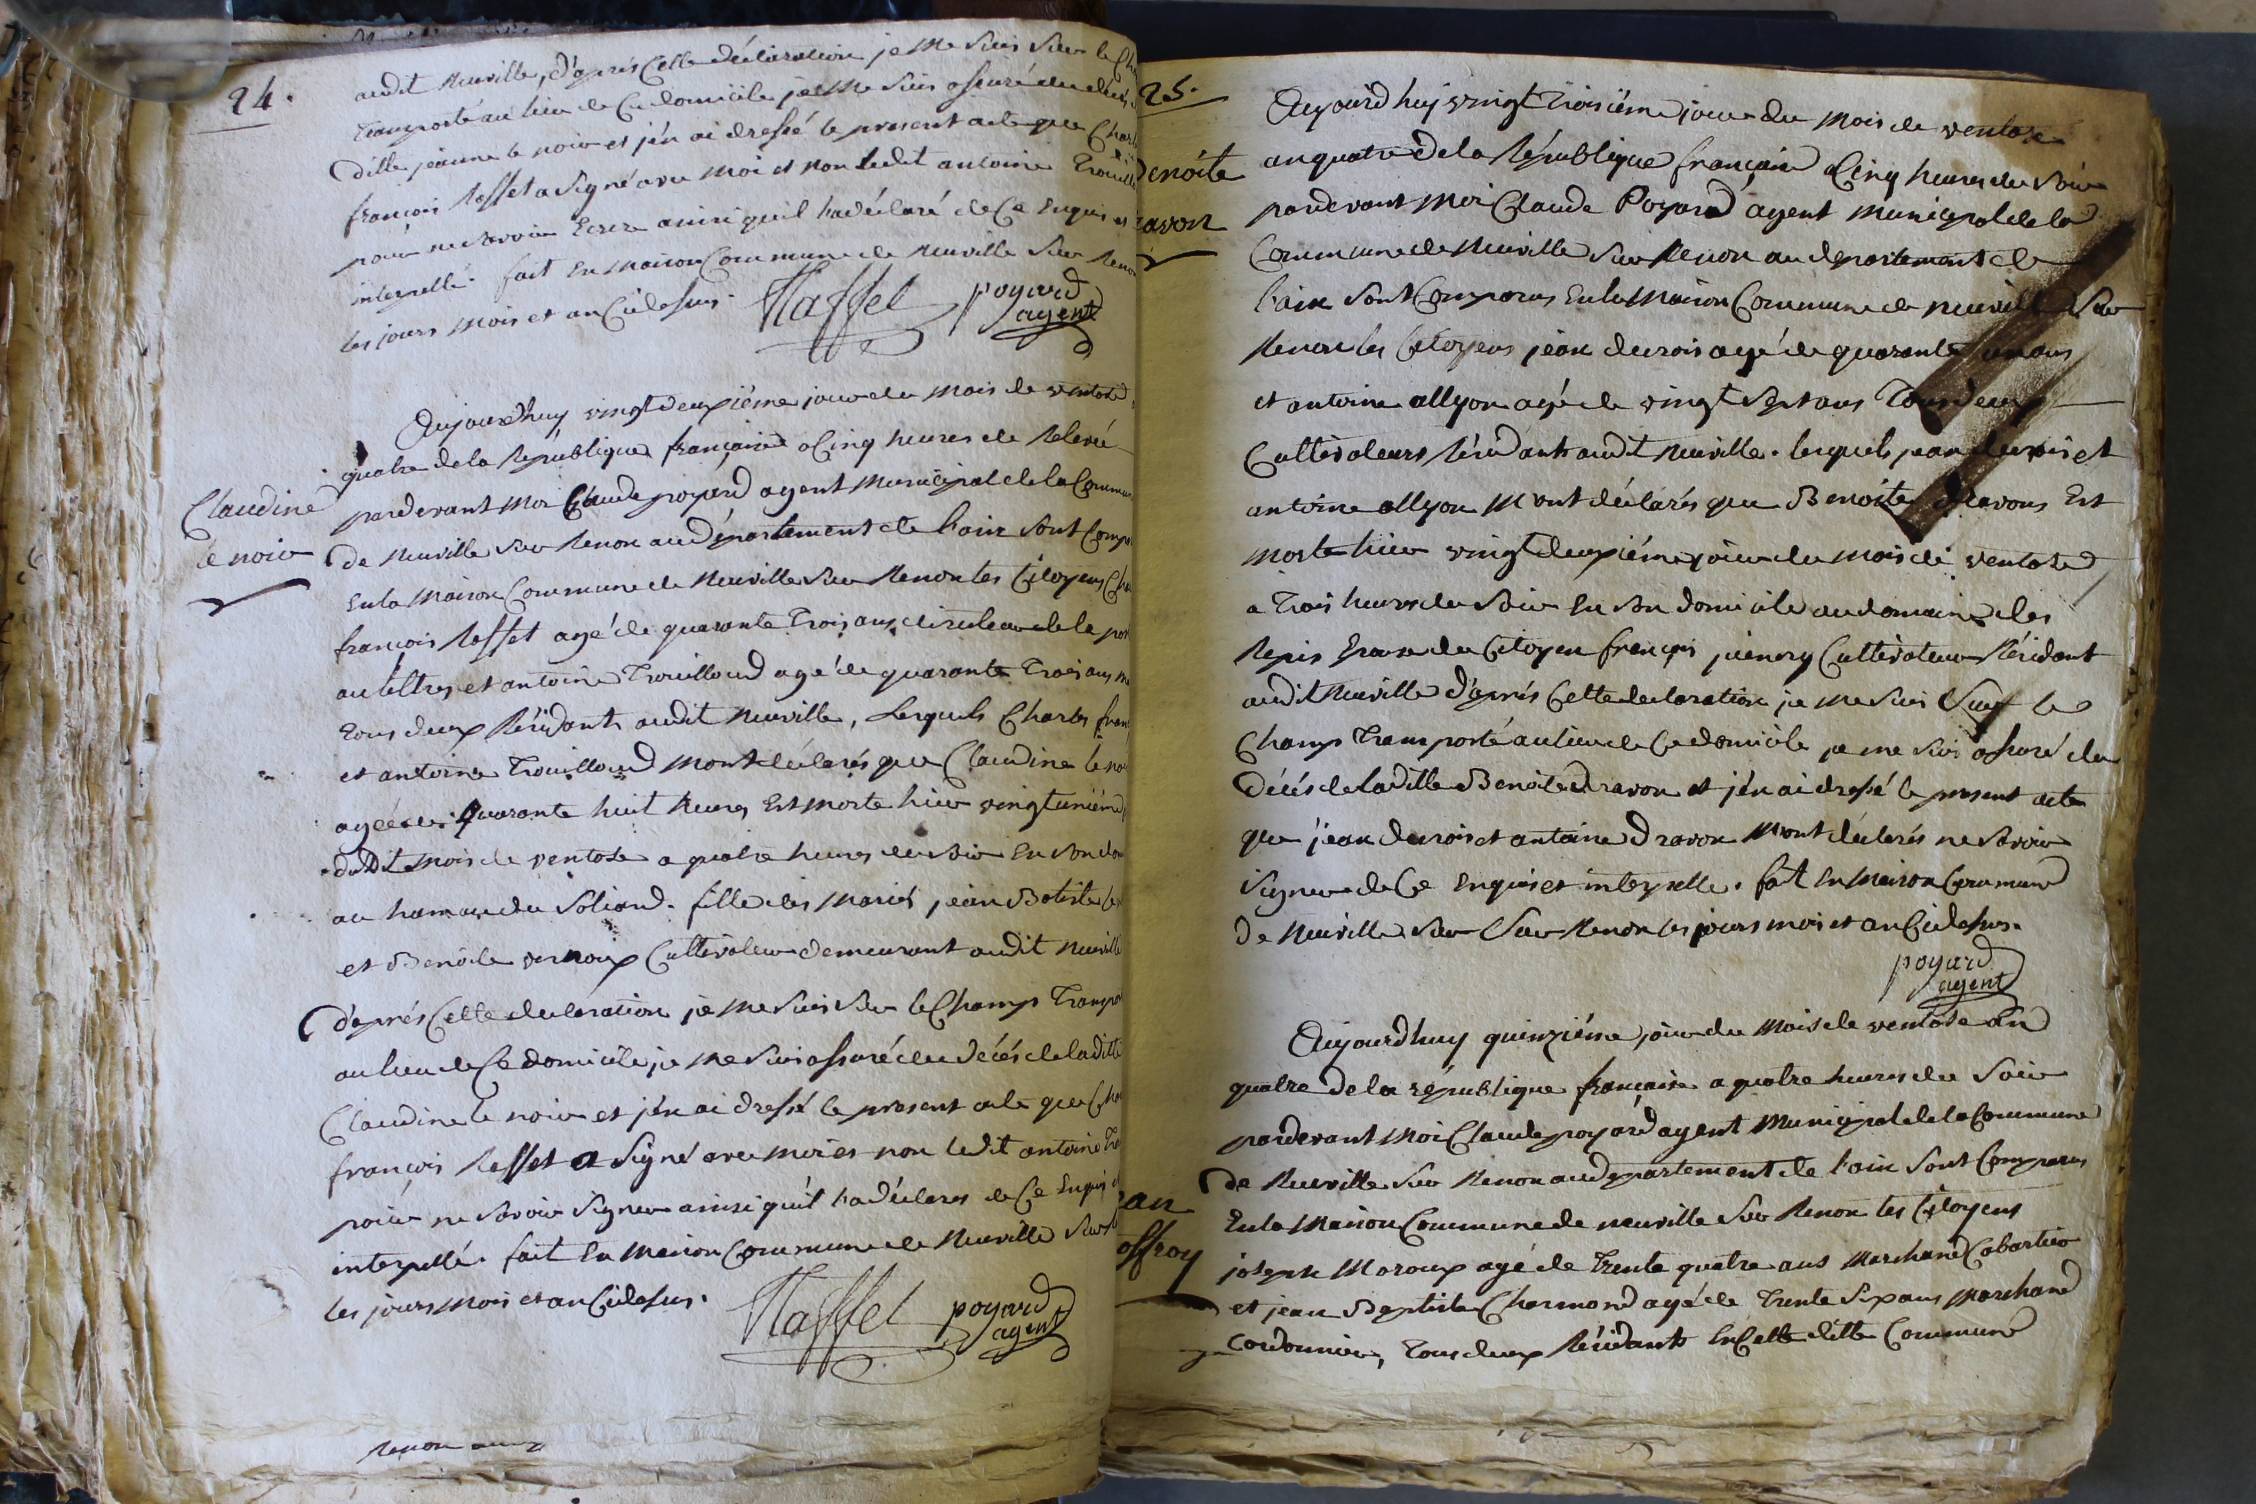 24.
audit Neuville, d'après Cette déclaration je me suis sur le
transporté au lieu de Ce domicile je me suis assuré du décès
ditte jeanne le noir et jén ai dressé le present acte que
françois Raffet a signé avec moi et non ledit antoine
pour ne savoir Ecrire ainsi quil l'a déclaré de Ce Enquis et
interpellé. fait En maison Commune de Neuville sur Renon
les jours mois et an Cidessus.
Raffet poyard
agent
Claudine
le noir
Aujourdhuy vingt deuxiéme jour du mois de ventose
quatre de la République française a Cinq heures de Relevée
pardevant moi Claude poyard agent municipal de la Commune
de Neuville sur Renon au département de l'ain sont
En la maison Commune de Neuville sur Renon les Citoyens
françois Raffet agé de quarante trois ans directeur de la
au lettres et antoine Trouilloud agé de quarante Trois ans
tous deux Résidants audit Neuville, Lesquels Charles
et antoine Trouilloud mont déclarés que Claudine le
agée de quarante huit heures Est morte hier vingtuniéme
dudit mois de ventose a quatre heures du soir En son
au hameau du Soliard. fille des mariés jean Batiste
et Benoite vernoux Cultivateur demeurant audit Neuville
d'après Cette declaration je me suis sur le Champ
au lieu de Ce domicile je me suis assuré du décés de laditte
Claudine le noir et jén ai dressé le present acte que
françois Raffet a signé avec moi et non ledit antoine
pour ne savoir signer ainsi quil l'a déclares de Ce Enquis
interpellé. fait En maison Commune de Neuville sur
les jours mois et an Cidessus.
Raffet poyard
agent
Renon
25.
Benoite
ravon
Aujourdhuy vingt troisiéme jour du mois de ventose
an quatre de la République française a Cinq heures du soir
pardevant moi Claude Poyard agent municipal de la
Commune de Neuville sur Renon au departement de
l'ain sont Comparus En la maison Commune de neuville sur
Renon les Citoyens jean durois agé de quarante un ans
et antoine allyon agé de vingt sept ans tous deux
Cultivateurs Résidants audit Neuville. lesquels jean durois et
antoine allyon m'ont déclarés que Benoite dravons Est
morte hier vingt deuxiéme jour du mois de ventose
a trois heures du soir En son domicile au domaine des
Repis Epouse du Citoyen françois Cultivateur Résidant
audit Neuville d'aprés Cette declaration je me suis sur le
Champ Transporté au lieu de Ce domicile je me suis assuré du
décés de laditte Benoite dravon et jén ai dressé le present acte
que jean durois et antoine dravon m'ont déclarés ne savoir
signer de Ce Enquis et interpelle. fait En maison Commune
de Neuville sur sur Renon les jours mois et an Cidessus.
poyard
agent
ean
offroy
Aujourdhuy quinziéme jour du mois de ventose an
quatre de la république française a quatre heures du soir
pardevant moi Claude poyard agent municipal de la Commune
de Neuville sur Renon au departement de l'ain sont Comparus
En la maison Commune de neuville sur Renon les Citoyens
joseph Maroux agé de trente quatre ans marchand Cabartier
et jean Baptiste Charmond agé de trente six ans marchand
Cordonnier, tous deux Résidants En Cette ditte Commune